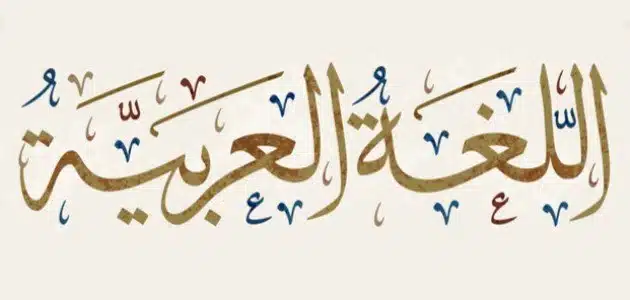 اللّغةُ العربيّةُ